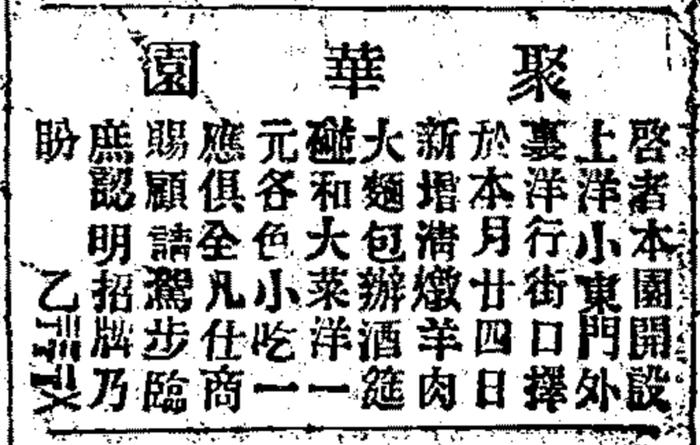 聚華園
啓者本園開設
上洋小東門外
裏洋行街口擇
於本月廿四日
新增清燉羊肉
大麵包辦酒筵
碰和大菜洋一
元各色小吃一
應俱全凡仕商
賜顧請駕步臨
庶認明招牌乃
盼